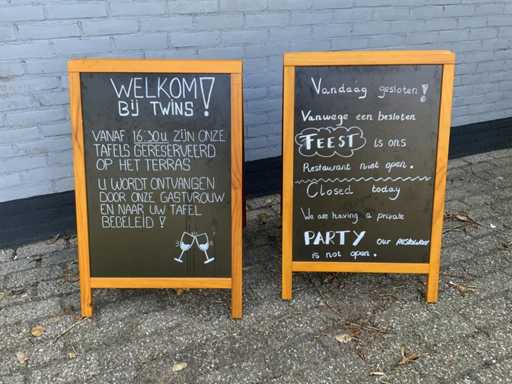 WELKOM!
BIJ TWINS
VANAF 16.30u ZIJN ONZE
TAFELS GERESERVEERD
OP HET TERRAS
U WORDT ONTVANGEN
DOOR ONZE GASTVROUW
EN NAAR UW TAFEL
BEGELEID!
Vandaag gesloten!
Vanwege een besloten
FEEST is ons
Restaurant niet open.
Closed today
We are having a private
PARTY our restaurant
is not open.